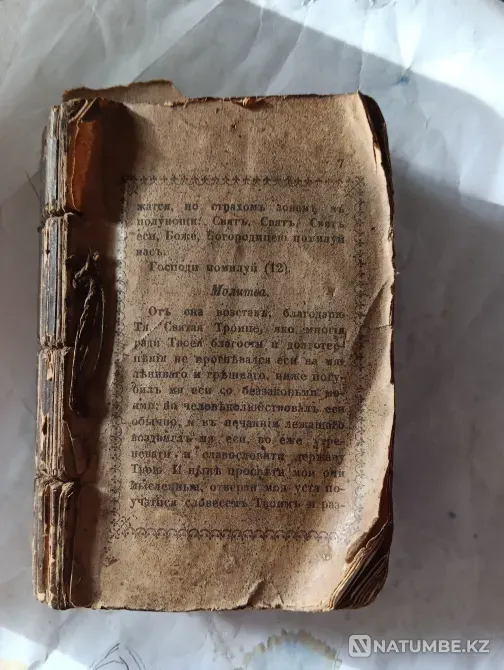 7
жатся, но страхомъ зовемъ въ
полунощи: Святъ, Святъ, Святъ
еси, Боже, Богородицею помилуй
насъ.
Господи помилуй (12).
Молитва.
Отъ сна возставъ, благодарю
Тя Святая Троице, яко многія
ради Твоея благости и долготер-
пѣнія не прогнѣвался еси на мя
лѣниваго и грѣшнаго, ниже погу-
билъ мя еси со беззаконьми мо-
ими; но человѣколюбствовалъ еси
обычно, и въ нечаяніи лежащаго
воздвиглъ мя еси, во еже утре-
невати и славословити державу
Твою. И нынѣ просвѣти мои очи
мысленныя, отверзи моя уста по-
учатися словесемъ Твоимъ и раз-
NATUMBE.KZ